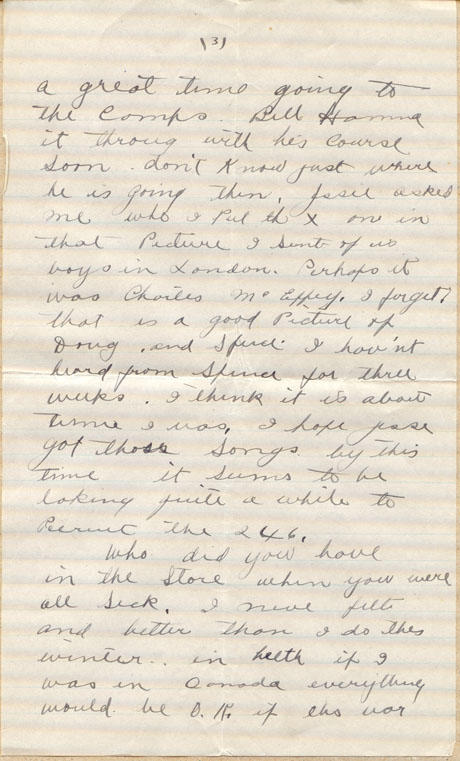 (3)
a great time going to
the Comps. Bill Hanna
it throug with his Course
soon. don't Know just where
he is going then. Jssie asked
me who I Put th X on in
that Picture I sent of us
boys in London. Perhaps it
was Charles Mc Effey. I forget.
that is a good Picture of
Doug. and Spence. I hav'nt
heard from Spence for three
weeks. I think it is about
time I was. I hope jsse
got those Songs by this
time it seems to be
taking quite a while to
Recruit the 246.
Who did you have
in the Store when you were
all Sick. I neve felt
and better than I do this
winter.. in helth if I
was in Canada everything
would be O.K. if ths war